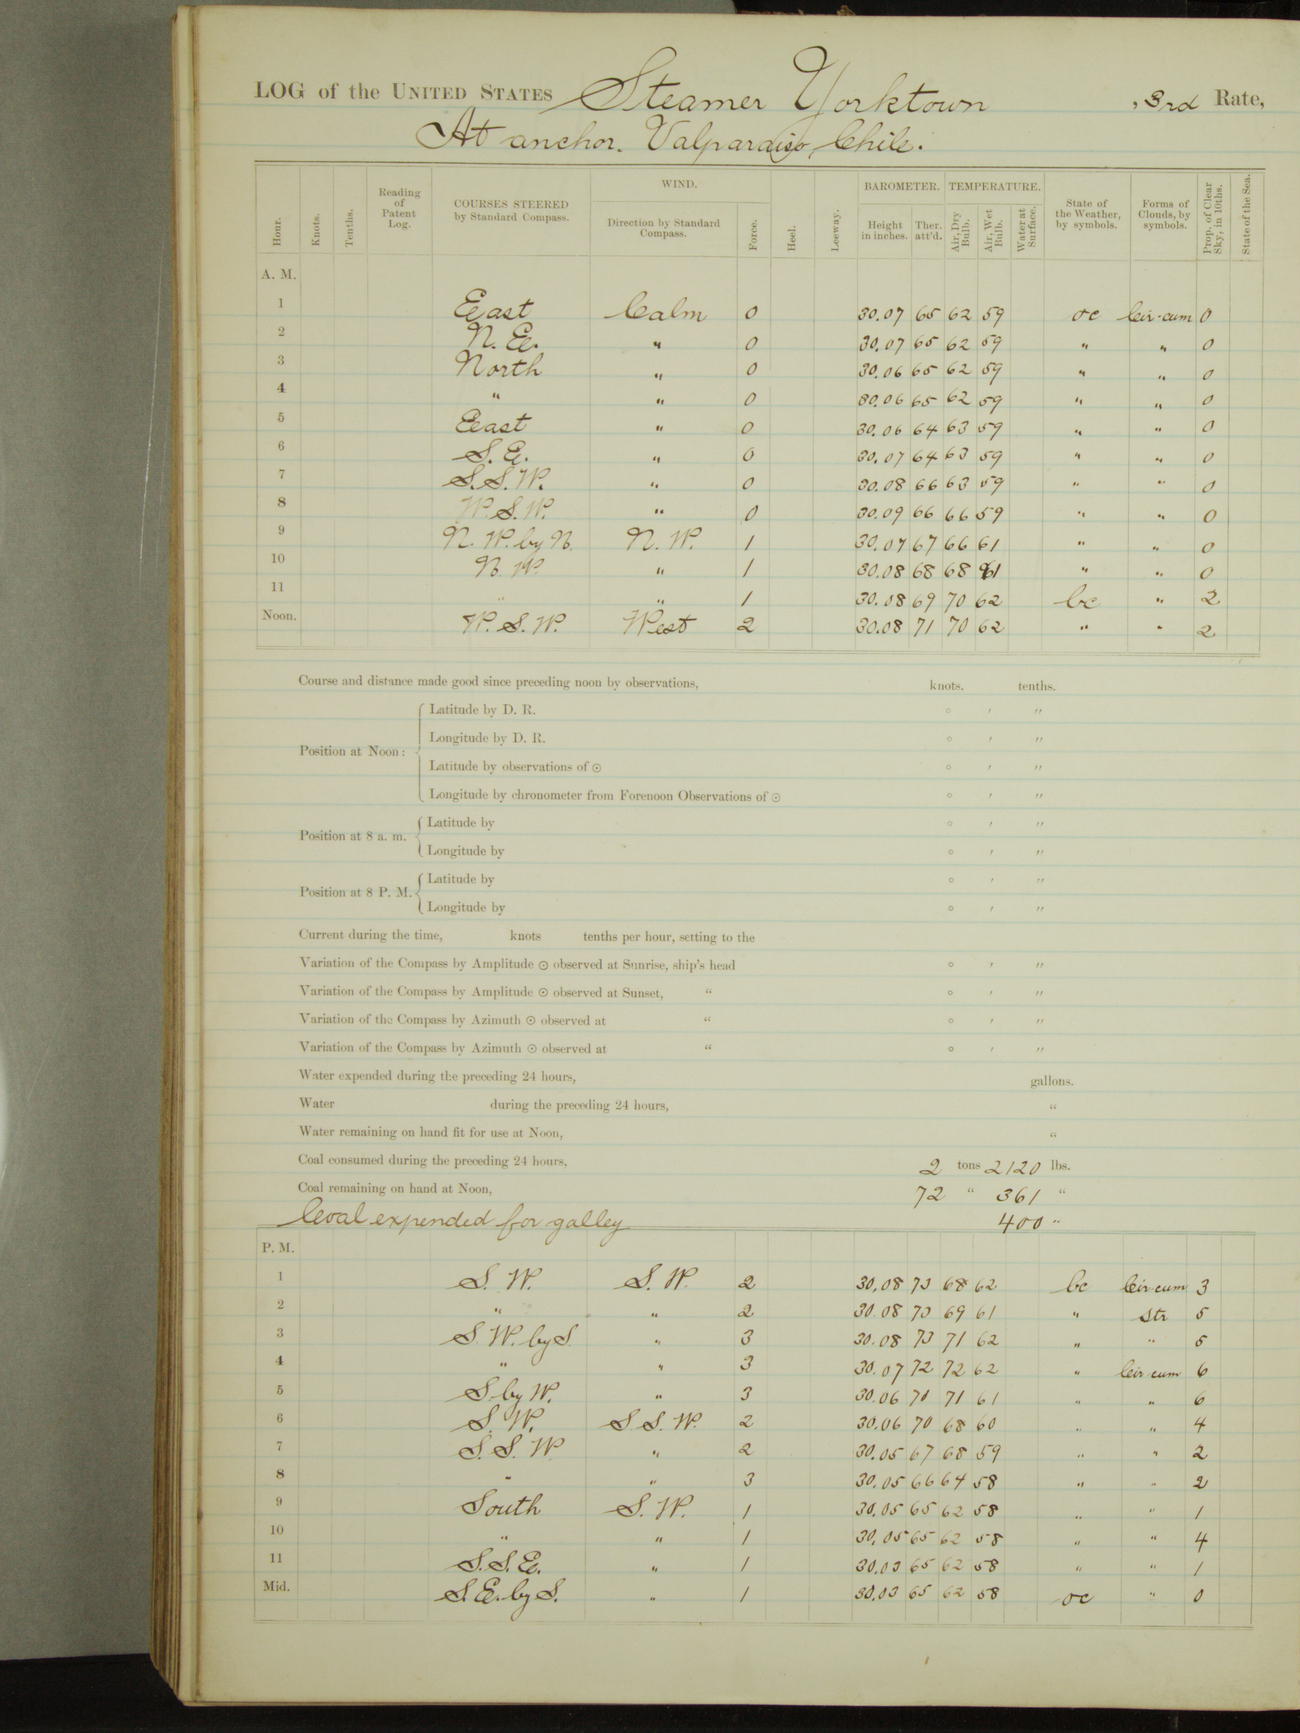 LOG of the UNITED STATES Steamer Yorktown , 3rd Rate,
At anchor. Valparaiso, Chile.
Hour. Knots. Tenths. Reading of Patent Log. COURSES STEERED by Standard Compass. WIND. Direction by Standard Compass. Force. Heel. Leeway. BAROMETER. Height in inches. Ther. att'd. TEMPERATURE. Air, Dry Bulb. Air, Wet Bulb. Water at Surface. State of the Weather, by symbols. Forms of Clouds, by symbols. Prop. of Clear Sky, in 10ths. State of the Sea.
A. M.
1 East Calm 0 30.07 65 62 59 oc Cir-cum 0
2 N. E. " 0 30.07 65 62 59 " " 0
3 North " 0 30.06 65 62 59 " " 0
4 " " 0 30.06 65 62 59 " " 0
5 East " 0 30.06 64 63 59 " " 0
6 S. E. " 0 30.07 64 63 59 " " 0
7 S. S. W. " 0 30.08 66 63 59 " " 0
8 W. S. W. " 0 30.09 66 66 59 " " 0
9 N. W. by N. N. W. 1 30.07 67 66 61 " " 0
10 N. W. " 1 30.08 68 68 61 " " 0
11 " " 1 30.08 69 70 62 bc " 2
Noon. W. S. W. West 2 30.08 71 70 62 " " 2
Course and distance made good since preceding noon by observations, knots. tenths.
Position at Noon: Latitude by D. R. ° ′ ″
Longitude by D. R. ° ′ ″
Latitude by observations of ☉ ° ′ ″
Longitude by chronometer from Forenoon Observations of ☉ ° ′ ″
Position at 8 a. m. Latitude by ° ′ ″
Longitude by ° ′ ″
Position at 8 P. M. Latitude by ° ′ ″
Longitude by ° ′ ″
Current during the time, knots tenths per hour, setting to the
Variation of the Compass by Amplitude ☉ observed at Sunrise, ship's head ° ′ ″
Variation of the Compass by Amplitude ☉ observed at Sunset, " ° ′ ″
Variation of the Compass by Azimuth ☉ observed at " ° ′ ″
Variation of the Compass by Azimuth ☉ observed at " ° ′ ″
Water expended during the preceding 24 hours, gallons.
Water during the preceding 24 hours, "
Water remaining on hand fit for use at Noon, "
Coal consumed during the preceding 24 hours, 2 tons 2120 lbs.
Coal remaining on hand at Noon, 72 " 361 "
Coal expended for galley 400 "
P. M.
1 S. W. S. W. 2 30.08 73 68 62 bc Cir-cum 3
2 " " 2 30.08 73 69 61 " Str 5
3 S. W. by S. " 3 30.08 73 71 62 " " 5
4 " " 3 30.07 72 72 62 " Cir-cum 6
5 S. by W. " 3 30.06 71 71 61 " " 6
6 S. W. S. S. W. 2 30.06 70 68 60 " " 4
7 S. S. W. " 2 30.05 67 68 59 " " 2
8 " " 3 30.05 66 64 58 " " 2
9 South S. W. 1 30.05 65 62 58 " " 1
10 " " 1 30.05 65 62 58 " " 4
11 S. S. E. " 1 30.03 65 62 58 " " 1
Mid. S. E. by S. " 1 30.03 65 62 58 oc " 0